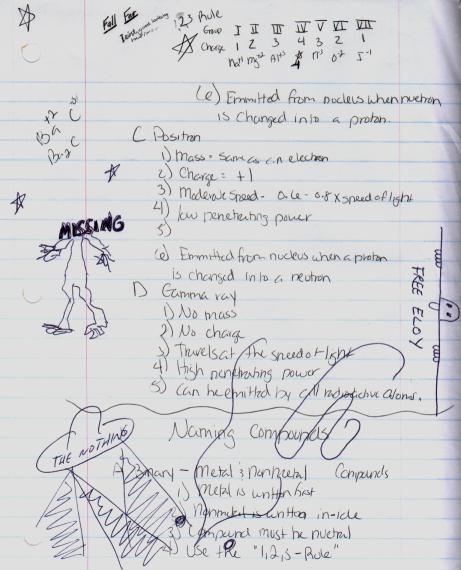 Fall Fae
1,2,3 Rule
Group I II III IV V VI VII
Charge 1 2 3 4 3 2 1
Na+1 Mg+2 Al+3 4 N-3 O-2 I-1
(6) Emmitted from nucleus when nuetron
is changed into a proton.
C Positron
1) Mass = same as an electron
2) Charge = +1
3) Moderate speed - 0.6 - 0.8 x speed of light
4) low penetrating power
5)
MISSING
(6) Emmitted from nucleus when a proton
is changed into a neutron
FREE ELOY
D Gamma ray
1) No mass
2) No charge
3) Travels at the speed of light
4) High penetrating power
5) Can be emitted by all radioactive atoms.
Naming Compounds
THE NOTHING
A Binary - Metal & Nonmetal Compounds
1) Metal is written first
2) Nonmetal is written in -ide
3) Compound must be nuetral
4) Use the "1,2,3 - Rule"